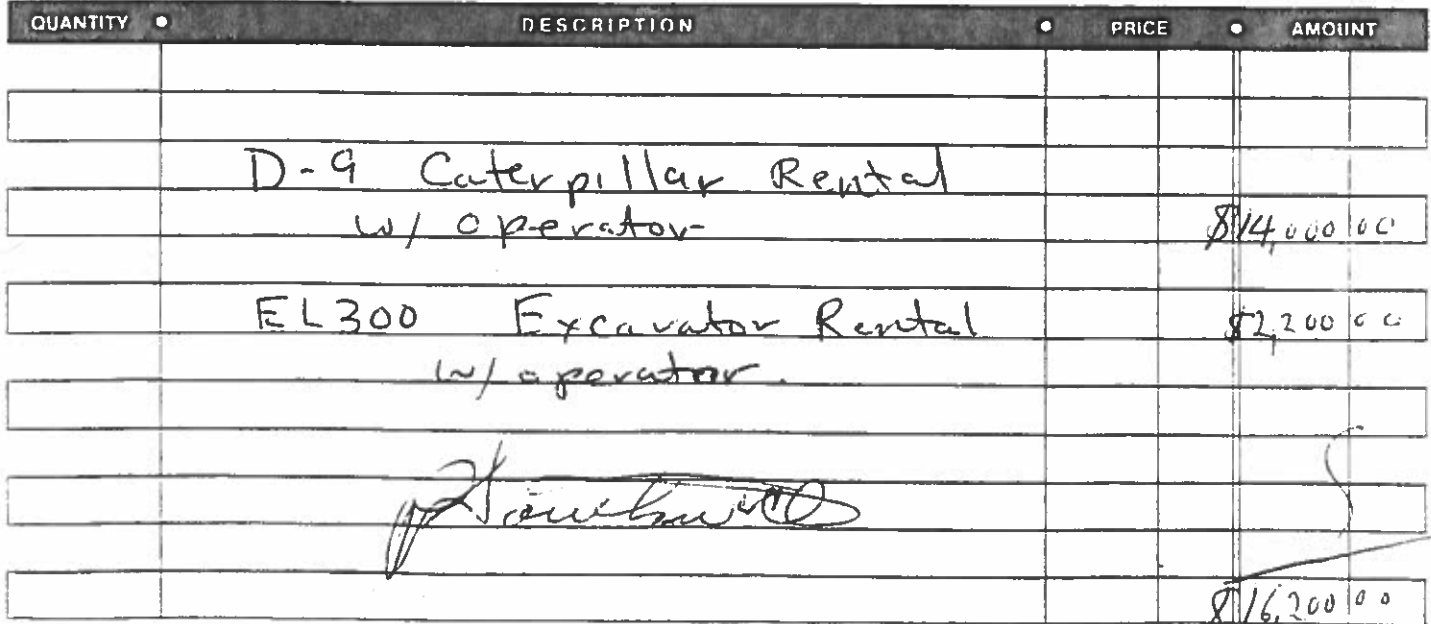 QUANTITY • DESCRIPTION • PRICE • AMOUNT
D-9 Caterpillar Rental
w/ operator $14,000 00
EL300 Excavator Rental $2,200 00
w/ operator.
$16,200 00